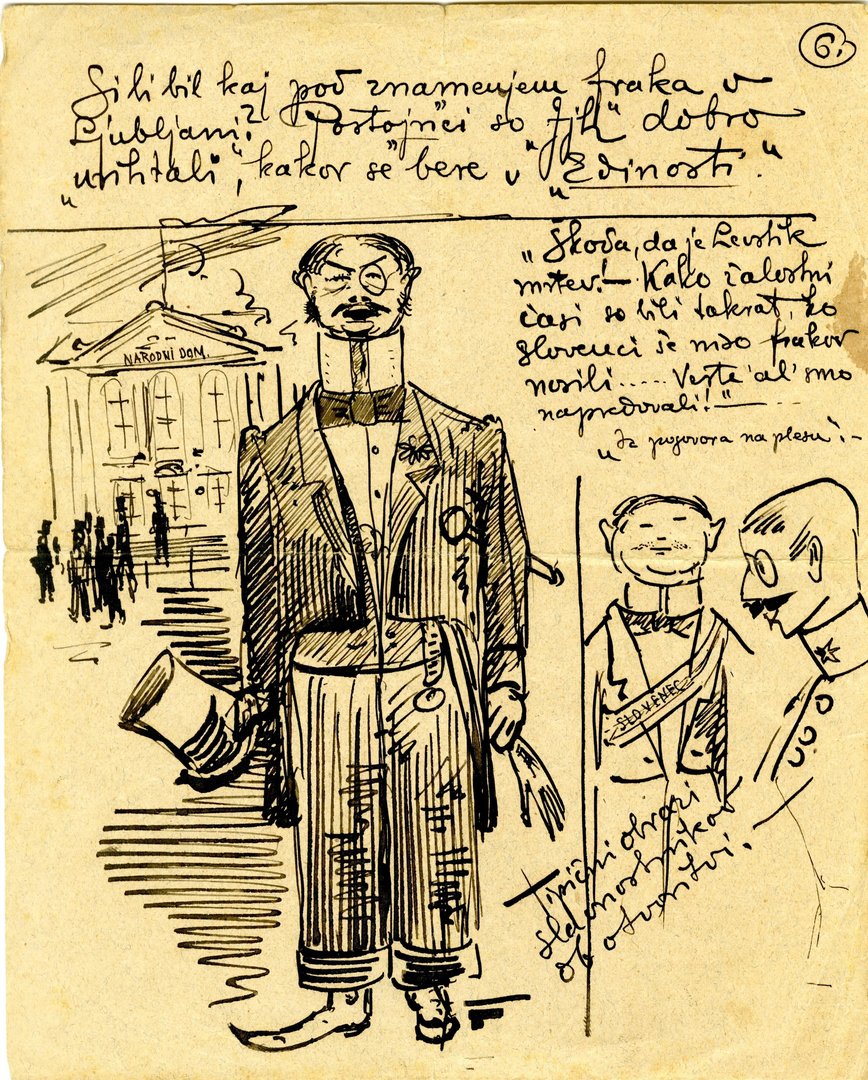 6.
Si li bil kaj pod znamenjem fraka v
Ljubljani? Postojnci so "jih" dobro
"urihtali", kakor se bere v "Edinosti".
"Škoda, da je Levstik
mrtev! — Kako žalostni
časi so bili takrat, ko
slovenci še niso frakov
nosili..... Veste 'al' smo
napredovali!" —
"Iz pogovora na plesu". —
NARODNI DOM.
SLOVENEC
Tipični obrazi
slavnostnikov
ob otvoritvi. —